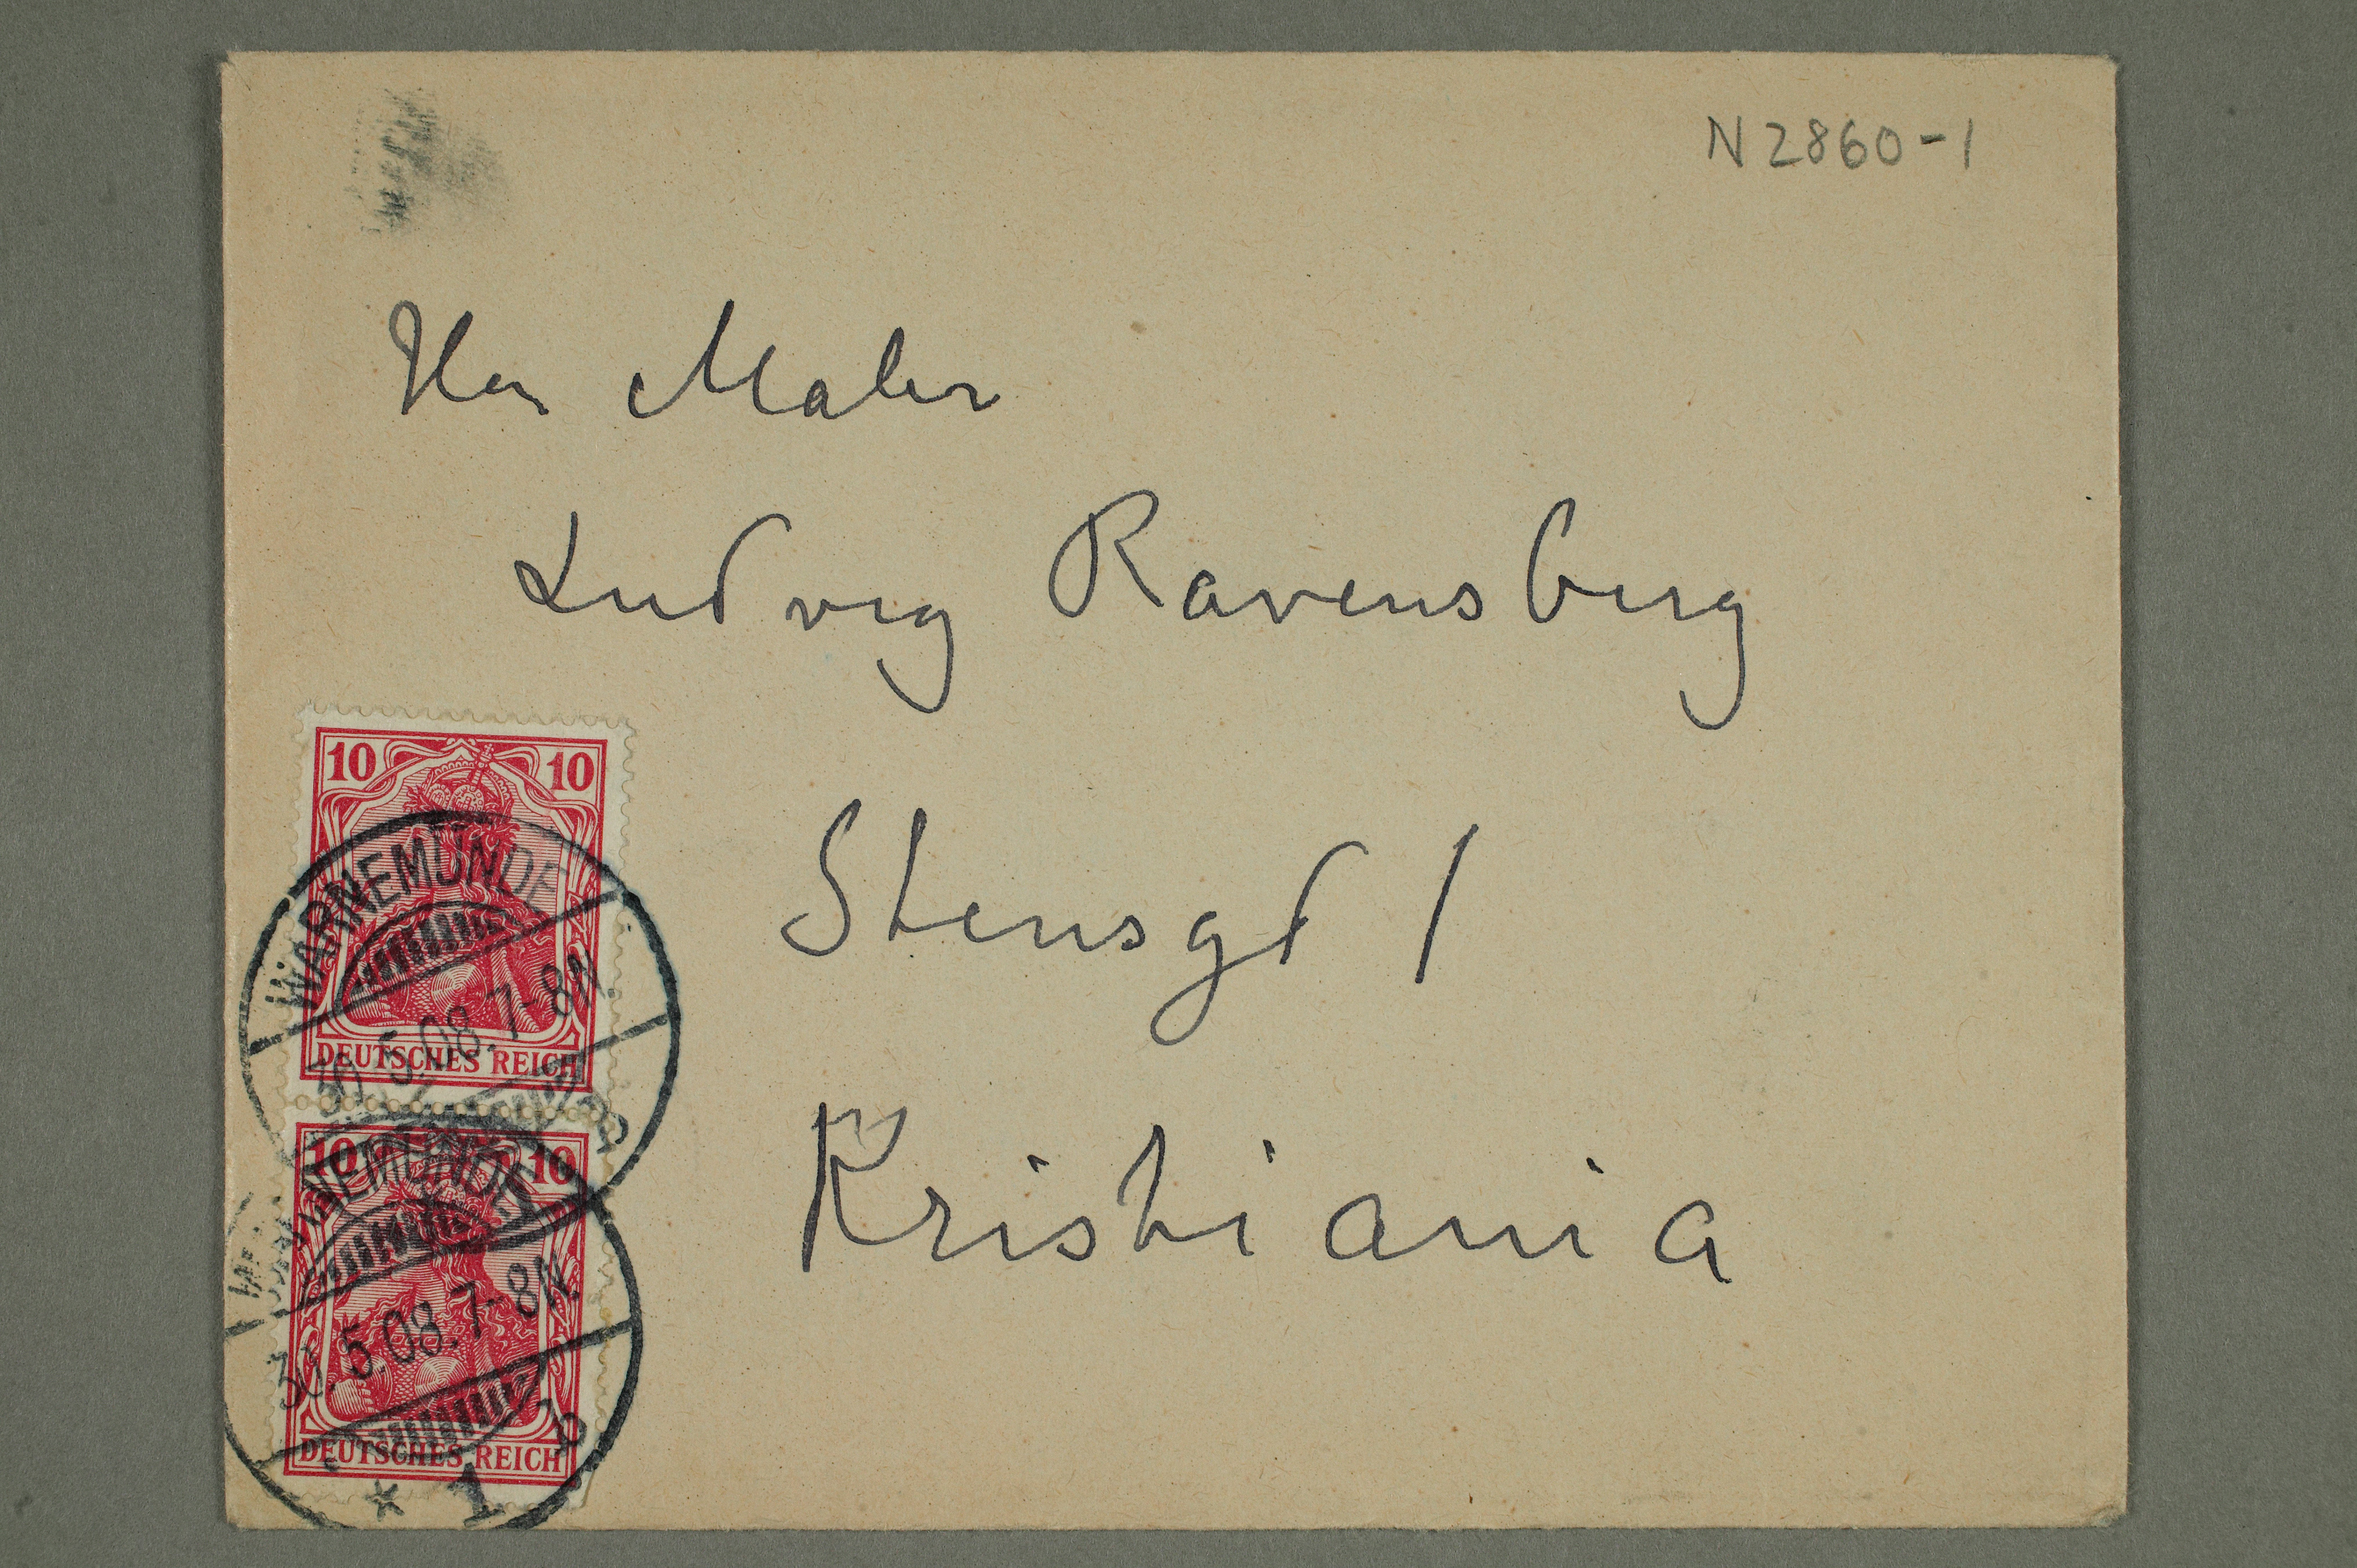 N 2860-1
Herr Maler
Ludvig Ravensberg
Stensgd 1
Kristiania
10 10
WARNEMÜNDE
30.5.08.7-8N.
DEUTSCHES REICH
10 10
WARNEMÜNDE
30.5.08.7-8N.
DEUTSCHES REICH
* 1 b